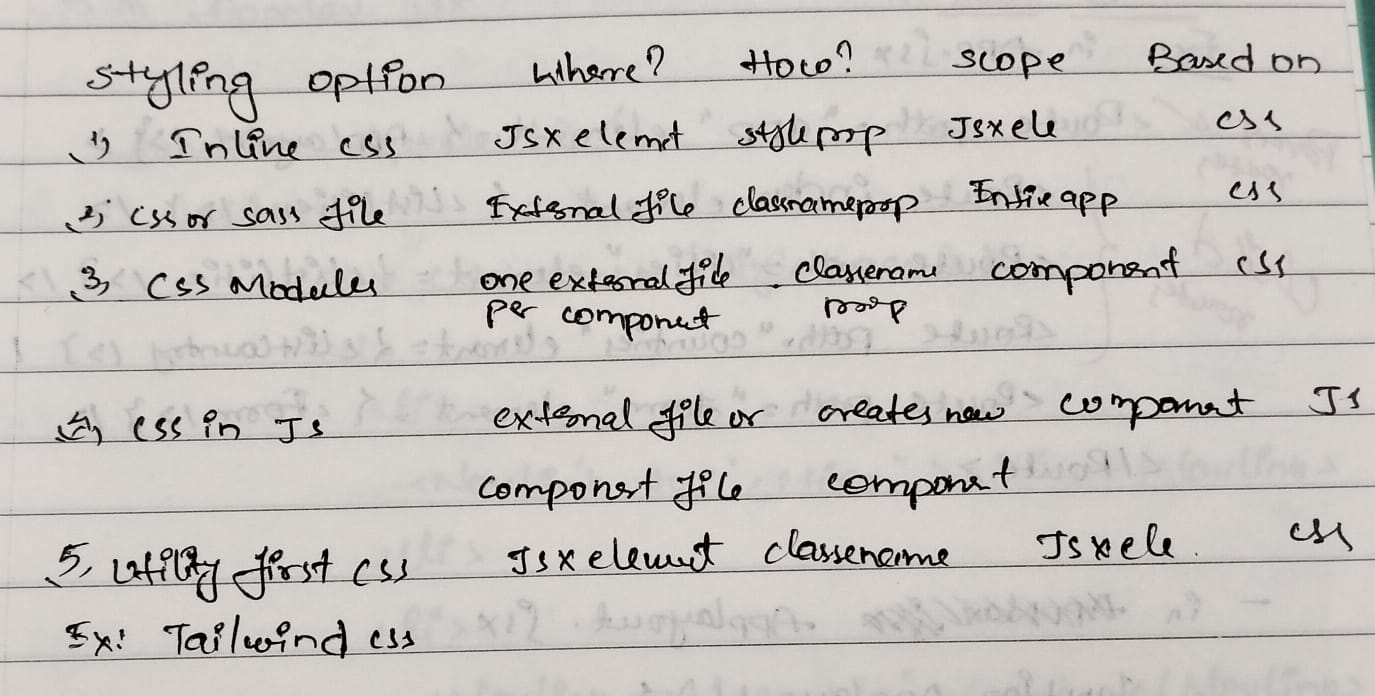 Styling option Where? How? scope Based on
1) Inline css Jsx elemet style prop Jsx ele css
2) css or sass file External file classname prop Entire app css
3, Css Modules one external file classename component css
per componet proop
4) css in Js external file or creates new componant Js
component file componet
5, Utility first css Jsx elemet classename Jsx ele. css
Ex: Tailwind css